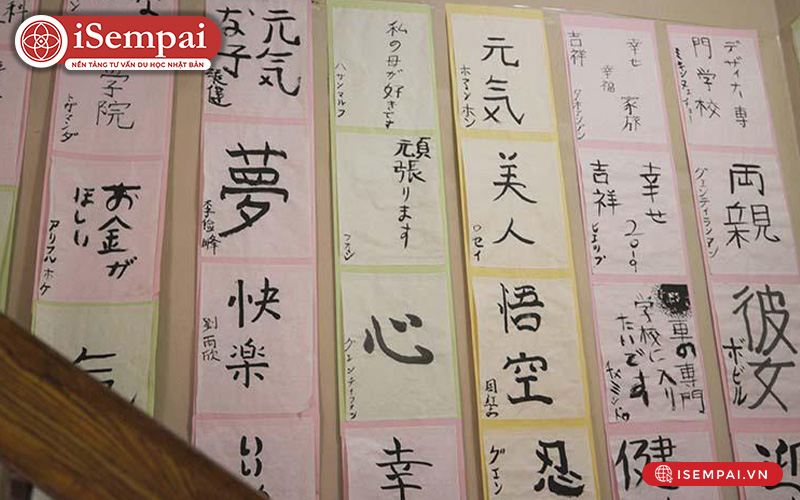 iSempai
NỀN TẢNG TƯ VẤN DU HỌC NHẬT BẢN
科
学院
お金が
ほしい
アリフルホケ
気
元気
な子
夢
李俊峰
快楽
劉雨欣
私の母が好きです
ハサンマルフ
頑張ります
ファン
心
グェンティフォン
幸
元気
ホアンホン
美人
ロセイ
悟空
忍
グエン
幸せ
幸福
家族
吉祥
幸せ
2019
吉祥
車の専門
学校に入り
たいです
健
デザイナー専
門学校
両親
グェンティランアン
彼女
ボビル
迎
ISEMPAI.VN